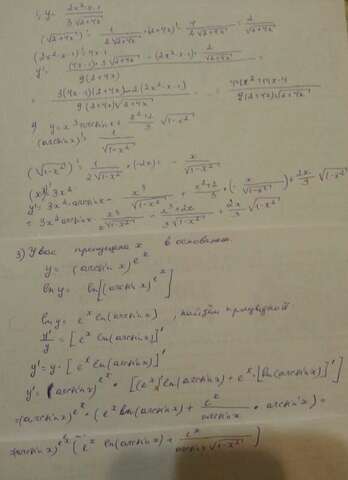 y = (2x²-x-1)/(3√(2+4x))
(√(2+4x))' = 1/(2√(2+4x)) · (2+4x)' = 4/(2√(2+4x)) = 2/√(2+4x)
(2x²-x-1)' = 4x-1
y' = ((4x-1)·3√(2+4x) - (2x²-x-1) · 2/√(2+4x))/(9(2+4x)) =
= (3(4x-1)(2+4x) - 2(2x²-x-1))/(9(2+4x)√(2+4x)) =
y = x³ arcsin x + (x²+2)/3 √(1-x²)
(arcsin x)' = 1/√(1-x²)
(√(1-x²))' = 1/(2√(1-x²)) · (-2x) = - x/√(1-x²)
(x³)' = 3x²
y' = 3x² arcsin x - x³/√(1-x²) + (x²+2)/3 · (- x/√(1-x²)) + 2x/3 √(1-x²)
= 3x² arcsin x - x³/√(1-x²) - (x³+2x)/(3√(1-x²)) + 2x/3 √(1-x²)
3) У вас пропущена x в основании.
y = (arcsin x)^(e^x)
ln y = ln[(arcsin x)^(e^x)]
ln y = e^x ln(arcsin x) , найдём производной
y'/y = [e^x ln(arcsin x)]'
y' = y · [e^x ln(arcsin x)]'
y' = (arcsin x)^(e^x) · [(e^x)' ln(arcsin x) + e^x · [ln(arcsin x)]']
= (arcsin x)^(e^x) · (e^x ln(arcsin x) + e^x/arcsin x · arcsin' x) =
= (arcsin x)^(e^x) (e^x ln(arcsin x) + e^x/(arcsin x √(1-x²))]